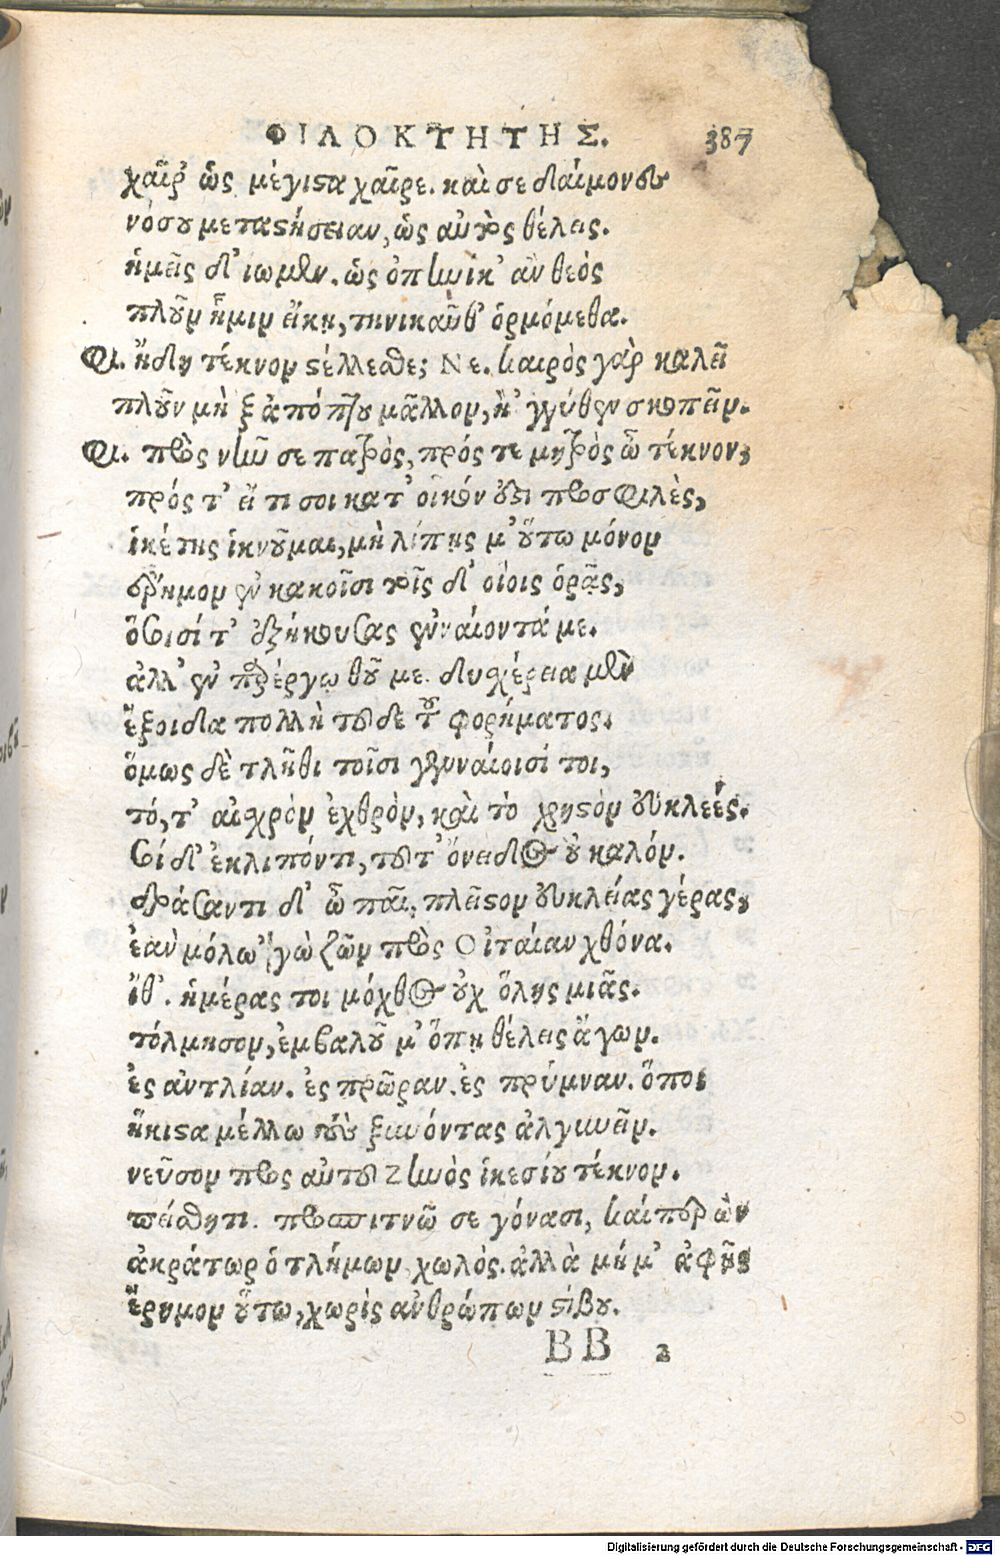 ΦΙΛΟΚΤΗΤΗΣ. 387
χαῖρ' ὡς μέγιστα χαῖρε. καὶ σε δαίμονες
νόσου μεταστήσειαν, ὡς αὐτὸς θέλεις.
ἡμεῖς δ' ἴωμεν. ὡς ὁπηνίκ' ἂν θεὸς
πλοῦν ἧμιν εἴκῃ, τηνικαῦθ' ὁρμώμεθα.
Φι. ἤδη τέκνον στέλλεσθε; Νε. καιρὸς γὰρ καλεῖ
πλοῦν μὴ ξ ἀπόπτου μᾶλλον, ἢ 'γγύθεν σκοπεῖν.
Φι. πρὸς νῦν σε πατρὸς, πρός τε μητρὸς ὦ τέκνον,
πρός τ' εἴ τι σοι κατ' οἶκόν ἐστι προσφιλὲς,
ἱκέτης ἱκνοῦμαι, μὴ λίπῃς μ' οὕτω μόνον
ἔρημον ἐν κακοῖσι τοῖς δ' οἵοις ὁρᾷς,
ὅσοισί τ' ἐξήκουσας ἐνναίοντά με.
ἀλλ' ἐν παρέργῳ θοῦ με. δυσχέρεια μὲν
ἔξοιδα πολλὴ τοῦδε τοῦ φορήματος.
ὅμως δὲ τλῆθι τοῖσι γενναίοισί τοι,
τό, τ' αἰσχρὸν ἐχθρὸν, καὶ τὸ χρηστὸν εὐκλεές.
σοί δ' ἐκλιπόντι, τοῦτ' ὄνειδος οὐ καλόν.
δράσαντι δ' ὦ παῖ, πλεῖστον εὐκλείας γέρας,
ἐὰν μόλω 'γὼ ζῶν πρὸς Οἰταίαν χθόνα.
ἴθ'. ἡμέρας τοι μόχθος οὐχ ὅλης μιᾶς.
τόλμησον, ἐμβαλοῦ μ' ὅπῃ θέλεις ἄγων.
ἐς ἀντλίαν. ἐς πρῶραν. ἐς πρύμναν. ὅποι
ἥκιστα μέλλω τοὺς ξυνόντας ἀλγυνεῖν.
νεῦσον πρὸς αὐτοῦ Ζηνὸς ἱκεσίου τέκνον.
πείσθητι. προσπιτνῶ σε γόνασι, καίπερ ὢν
ἀκράτωρ ὁ τλήμων χωλός. ἀλλὰ μή μ' ἀφῇς
ἔρημον οὕτω, χωρὶς ἀνθρώπων στίβου.
BB 2
Digitalisierung gefördert durch die Deutsche Forschungsgemeinschaft - DFG